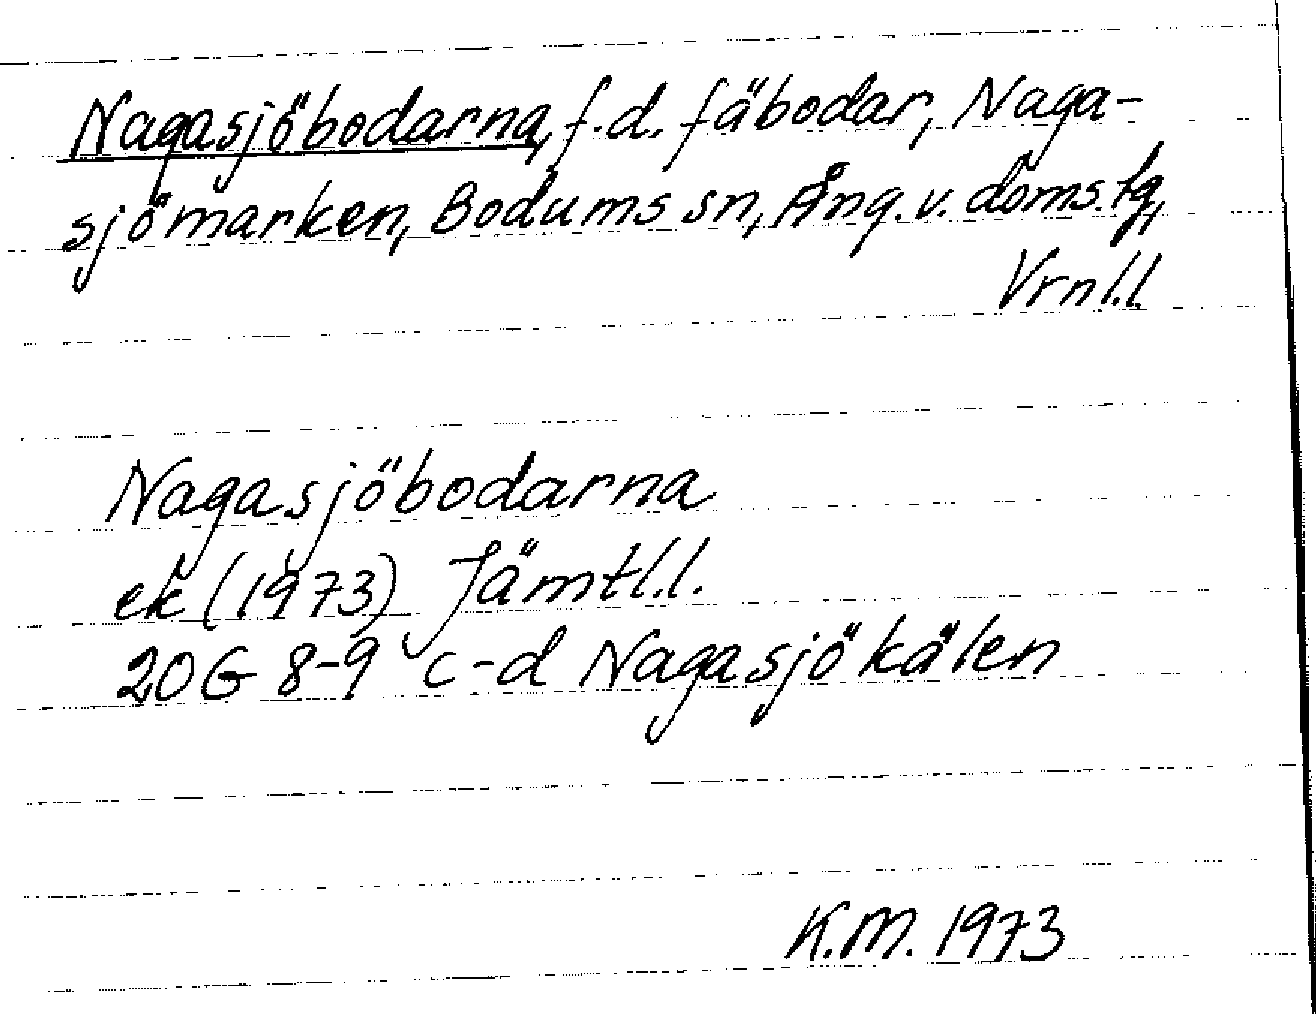 Nagasjöbodarna, f.d. fäbodar, Naga-
sjömarken, Bodums sn, Ång. v. doms.tg,
Vrnl.l.
Nagasjöbodarna
ek (1973) Jämtl.l.
20G 8-9 c-d Nagasjökälen
K.M. 1973